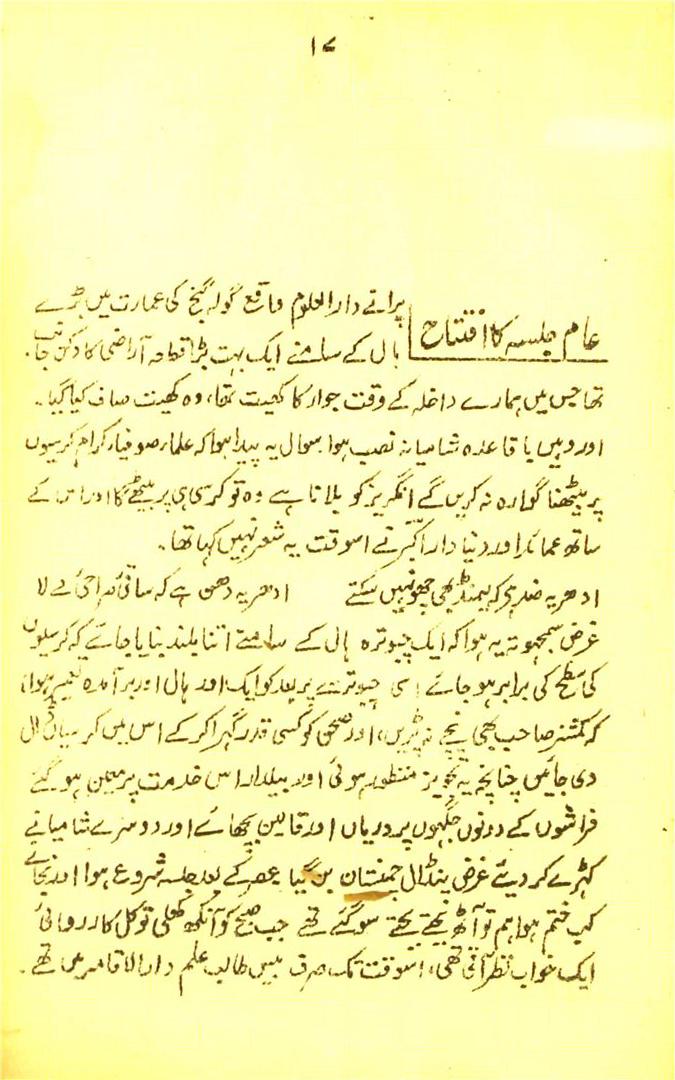 ۱۷
عام جلسہ کا افتتاح
پرانے دارالعلوم واقع گولہ گنج کی عمارت میں بڑے
ہال کے سامنے ایک بہت بڑا قطعہ آراضی کا دکن جانب
تھا جس میں ہمارے داخلہ کے وقت جوار کا کھیت تھا، وہ کھیت صاف کیا گیا۔
اور وہیں باقاعدہ شامیانہ نصب ہوا۔ سوال یہ پیدا ہوا کہ علماء صوفیاء کرام کرسیوں
پر بیٹھنا گوارہ نہ کریں گے انگریز کو بلانا ہے وہ تو کرسی ہی پر بیٹھے گا اور اس کے
ساتھ عمائد اور دنیا دار اکبر نے اسوقت یہ شعر نہیں کہا تھا۔
ادھر یہ ضد ہے کہ لیمنڈ بھی چھو نہیں سکتے ادھر یہ دھن ہے کہ ساقی صراحی مے لا
غرض سمجھوتہ یہ ہوا کہ ایک چبوترہ ہال کے سامنے اتنا بلند بنایا جائے کہ کرسیوں
کی سطح کی برابر ہو جائے اسی چبوترے پر بعد کو ایک اور ہال اور برآمدہ تعمیر ہوا،
کہ کمشنر صاحب بھی نیچے نہ پڑیں، اور صحن کو کسی قدر گہرا کر کے اس میں کرسیاں ڈال
دی جائیں چنانچہ یہ تجویز منظور ہوئی اور بیلدار اس خدمت پر معین ہو گئے
فراشوں کے دونوں جگہوں پر دریاں اور قالین بچھائے اور دوسرے شامیانے
کھڑے کر دیئے غرض پنڈال چمنستان بن گیا عصر کے بعد جلسہ شروع ہوا اور نجانے
کب ختم ہوا ہم تو آٹھ بجتے بجتے سو گئے تھے جب صبح کو آنکھ کھلی تو کل کارروائی
ایک خواب نظر آتی تھی، اسوقت تک صرف بیس طالب علم دارالاقامہ میں تھے۔